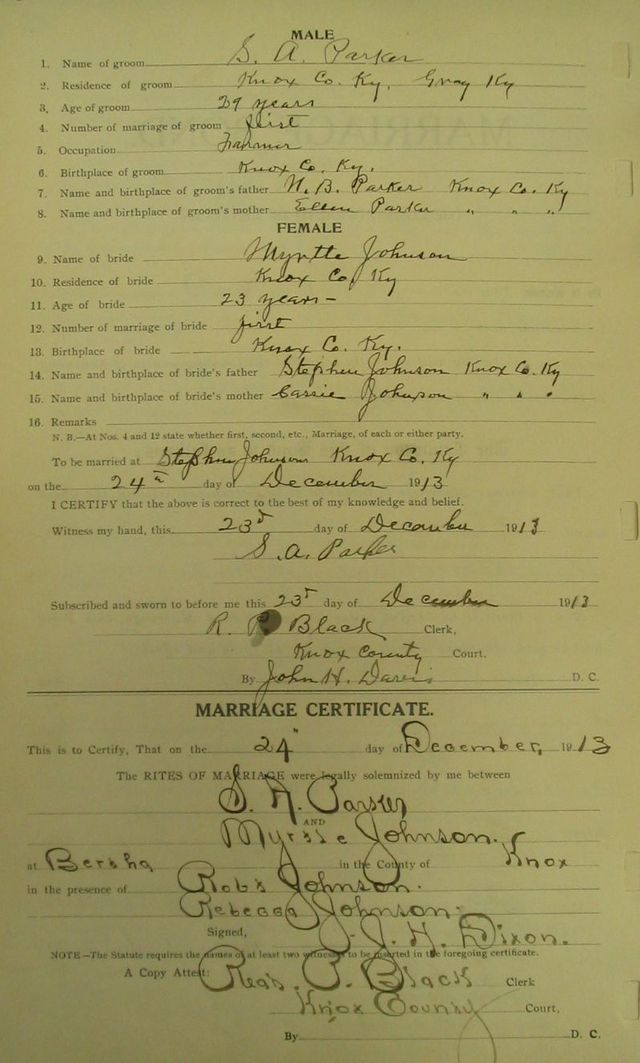 MALE
1. Name of groom S. A. Parker
2. Residence of groom Knox Co. Ky, Gray Ky
3. Age of groom 29 years
4. Number of marriage of groom first
5. Occupation Farmer
6. Birthplace of groom Knox Co. Ky.
7. Name and birthplace of groom's father W. B. Parker Knox Co. Ky
8. Name and birthplace of groom's mother Ellen Parker " " "
FEMALE
9. Name of bride Myrtle Johnson
10. Residence of bride Knox Co, Ky
11. Age of bride 23 years-
12. Number of marriage of bride first
13. Birthplace of bride Knox Co. Ky.
14. Name and birthplace of bride's father Stephen Johnson Knox Co. Ky
15. Name and birthplace of bride's mother Carrie Johnson " " "
16. Remarks
N. B.—At Nos. 4 and 12 state whether first, second, etc., Marriage, of each or either party.
To be married at Stephen Johnson Knox Co. Ky
on the 24th day of December 1913
I CERTIFY that the above is correct to the best of my knowledge and belief.
Witness my hand, this 23d day of December 1913
S. A. Parker
Subscribed and sworn to before me this 23d day of December 1913
R. P. Black Clerk,
Knox County Court.
By John H. Davis D. C.
MARRIAGE CERTIFICATE.
This is to Certify, That on the 24" day of December, 1913
The RITES OF MARRIAGE were legally solemnized by me between
S. A. Parker
AND
Myrtle Johnson.
at Bertha in the County of Knox
in the presence of Robt Johnson.
Rebecca Johnson.
Signed, J. H. Dixon.
NOTE—The Statute requires the names of at least two witnesses to be inserted in the foregoing certificate.
A Copy Attest: Read P. Black Clerk
Knox County Court,
By D. C.